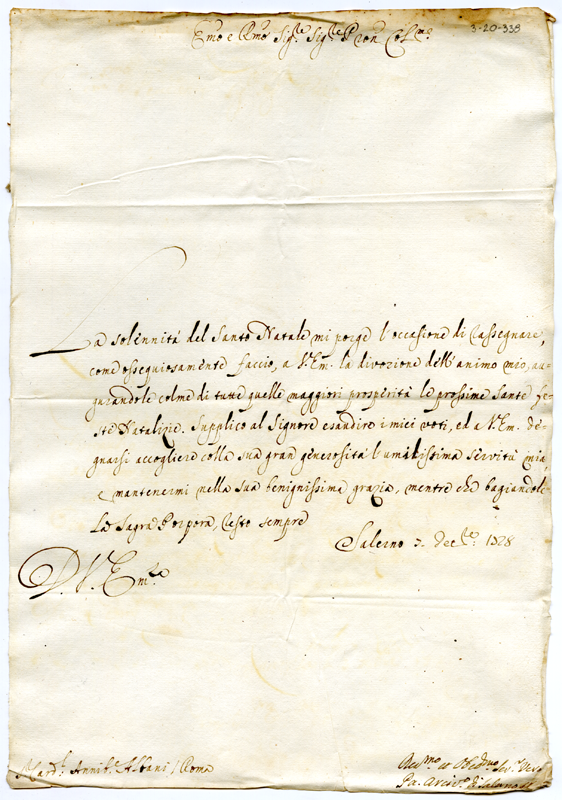 3-20-338
Emo e Rmo Sig.re Sig.re Pron Col.mo
La solennità del Santo Natale mi porge l'occasione di rassegnare,
come ossequiosamente faccio, a V. Em. la divozione dell'animo mio, au-
gurandole colme di tutte quelle maggiori prosperità le prossime Sante fe-
ste Natalizie. Supplico al Signore esaudire i miei voti, ed a V. Em. de-
gnarsi accogliere colla sua gran generosità l'umilissima servitù mia,
e mantenermi nella sua benignissima grazia, mentre che bagiandole
La Sagra Porpora, resto sempre
Salerno Xbre 1728
D. V. Em.za
Card. Annib.e Albani / Roma
Um.mo et Obed.mo Ser.re Vero
Arciv.o di Salerno